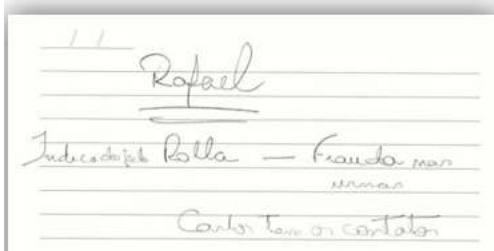 / /
Rafael
Indicado pelo Rolla — Frauda nas
urnas
Carlos Tem os contatos